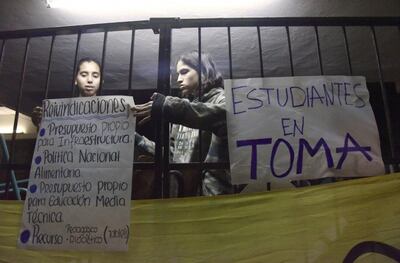 Reivindicaciones
Presupuesto propio
para Infraestructura.
Politica Nacional
Alimentaria.
Presupuesto propio
para Educacion Media
Técnica.
Recurso Pedagógico
Didáctico
ESTUDIANTES
EN
TOMA